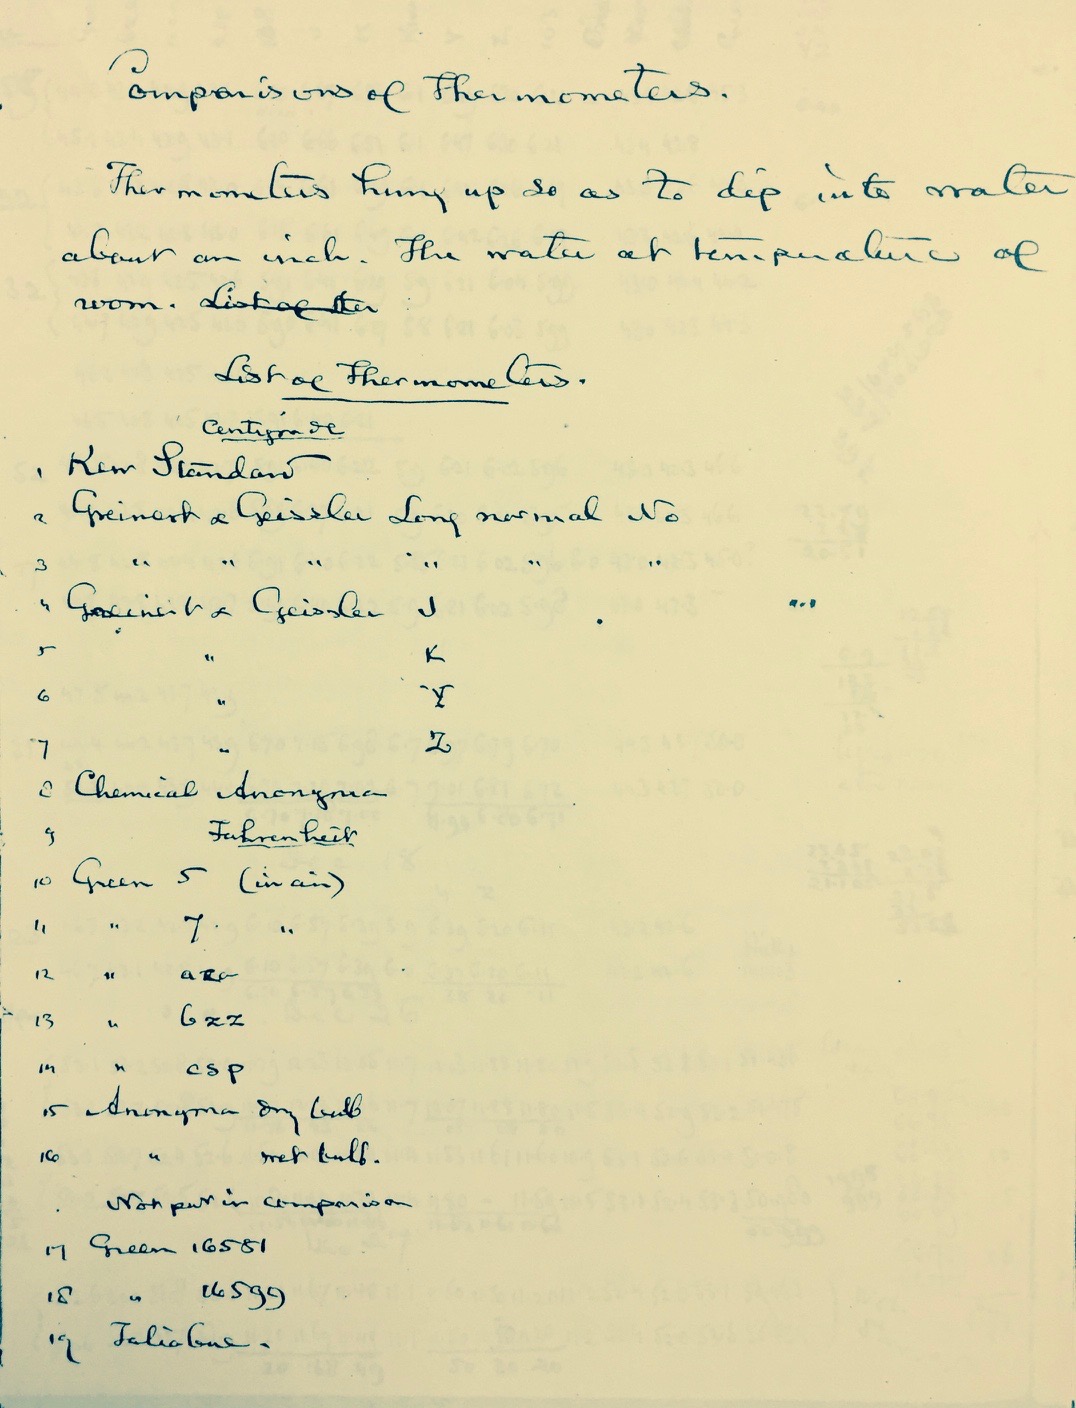 Comparisons of Thermometers.
Thermometers hung up so as to dip into water
about an inch. The water at temperature of
room. List of ther
List of Thermometers.
Centigrade
1 Kew Standard
2 Greinert & Geissler Long normal No
3 " " " " " "
4 Greinert & Geissler J "
5 " K
6 " Y
7 " Z
8 Chemical Anonyma
9 Fahrenheit
10 Green 5 (in air)
11 " 7 "
12 "
13 " bzz
14 " csp
15 Anonyma dry bulb
16 " wet bulb.
Not put in comparison
17 Green 16581
18 " 16599
19